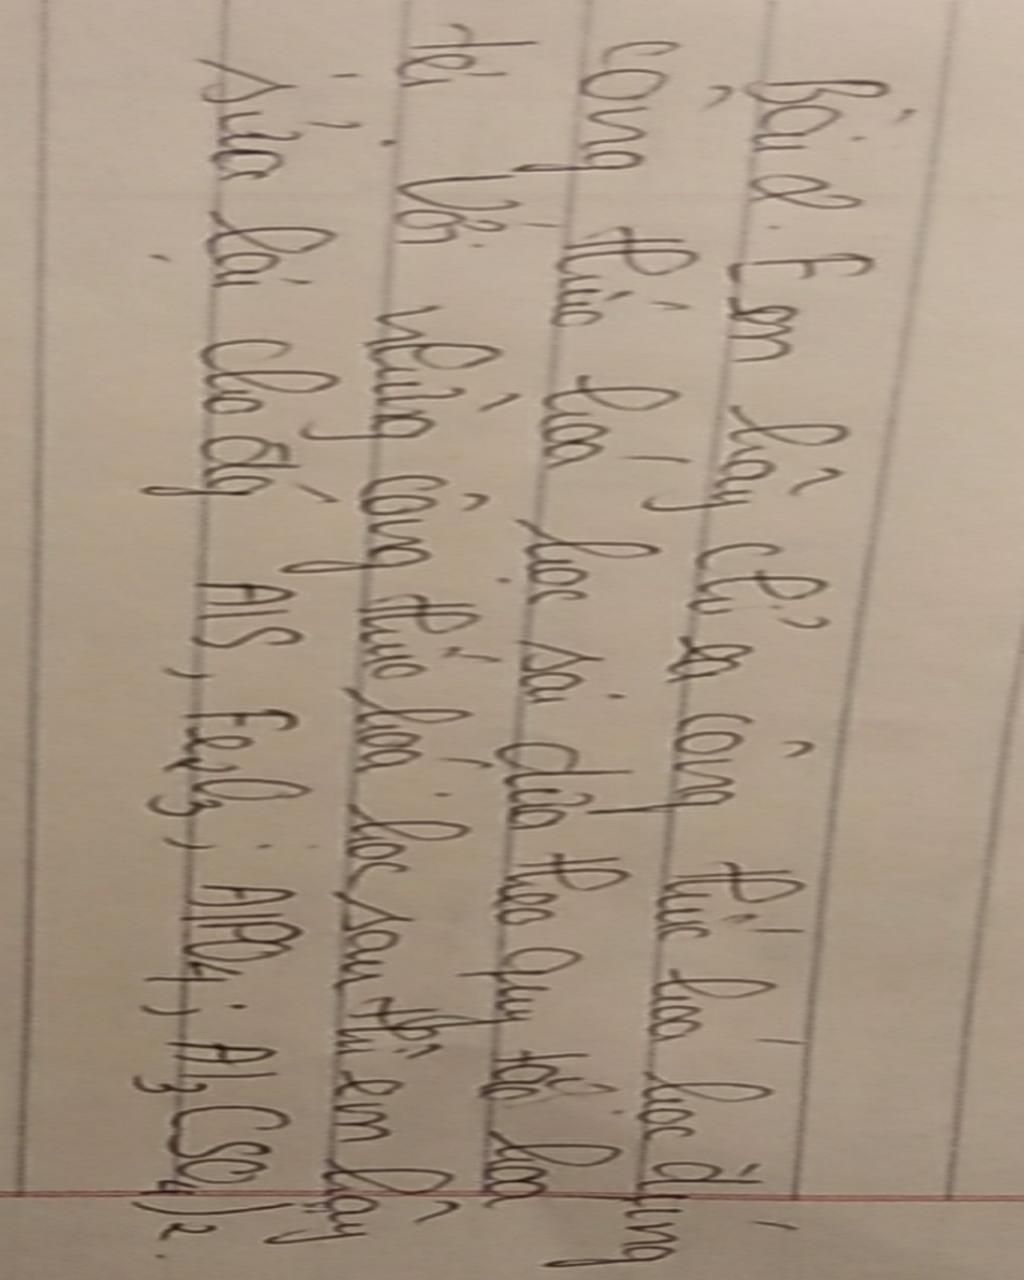 Bài 2. Em hãy chỉ ra công thức hoá học đúng
công thức hoá học sai dựa theo quy tắc hoá
trị. Với những công thức hoá học sau thì em hãy
sửa lại cho đúng AlS, Fe2O3; AlPO4; Al3(SO4)2.